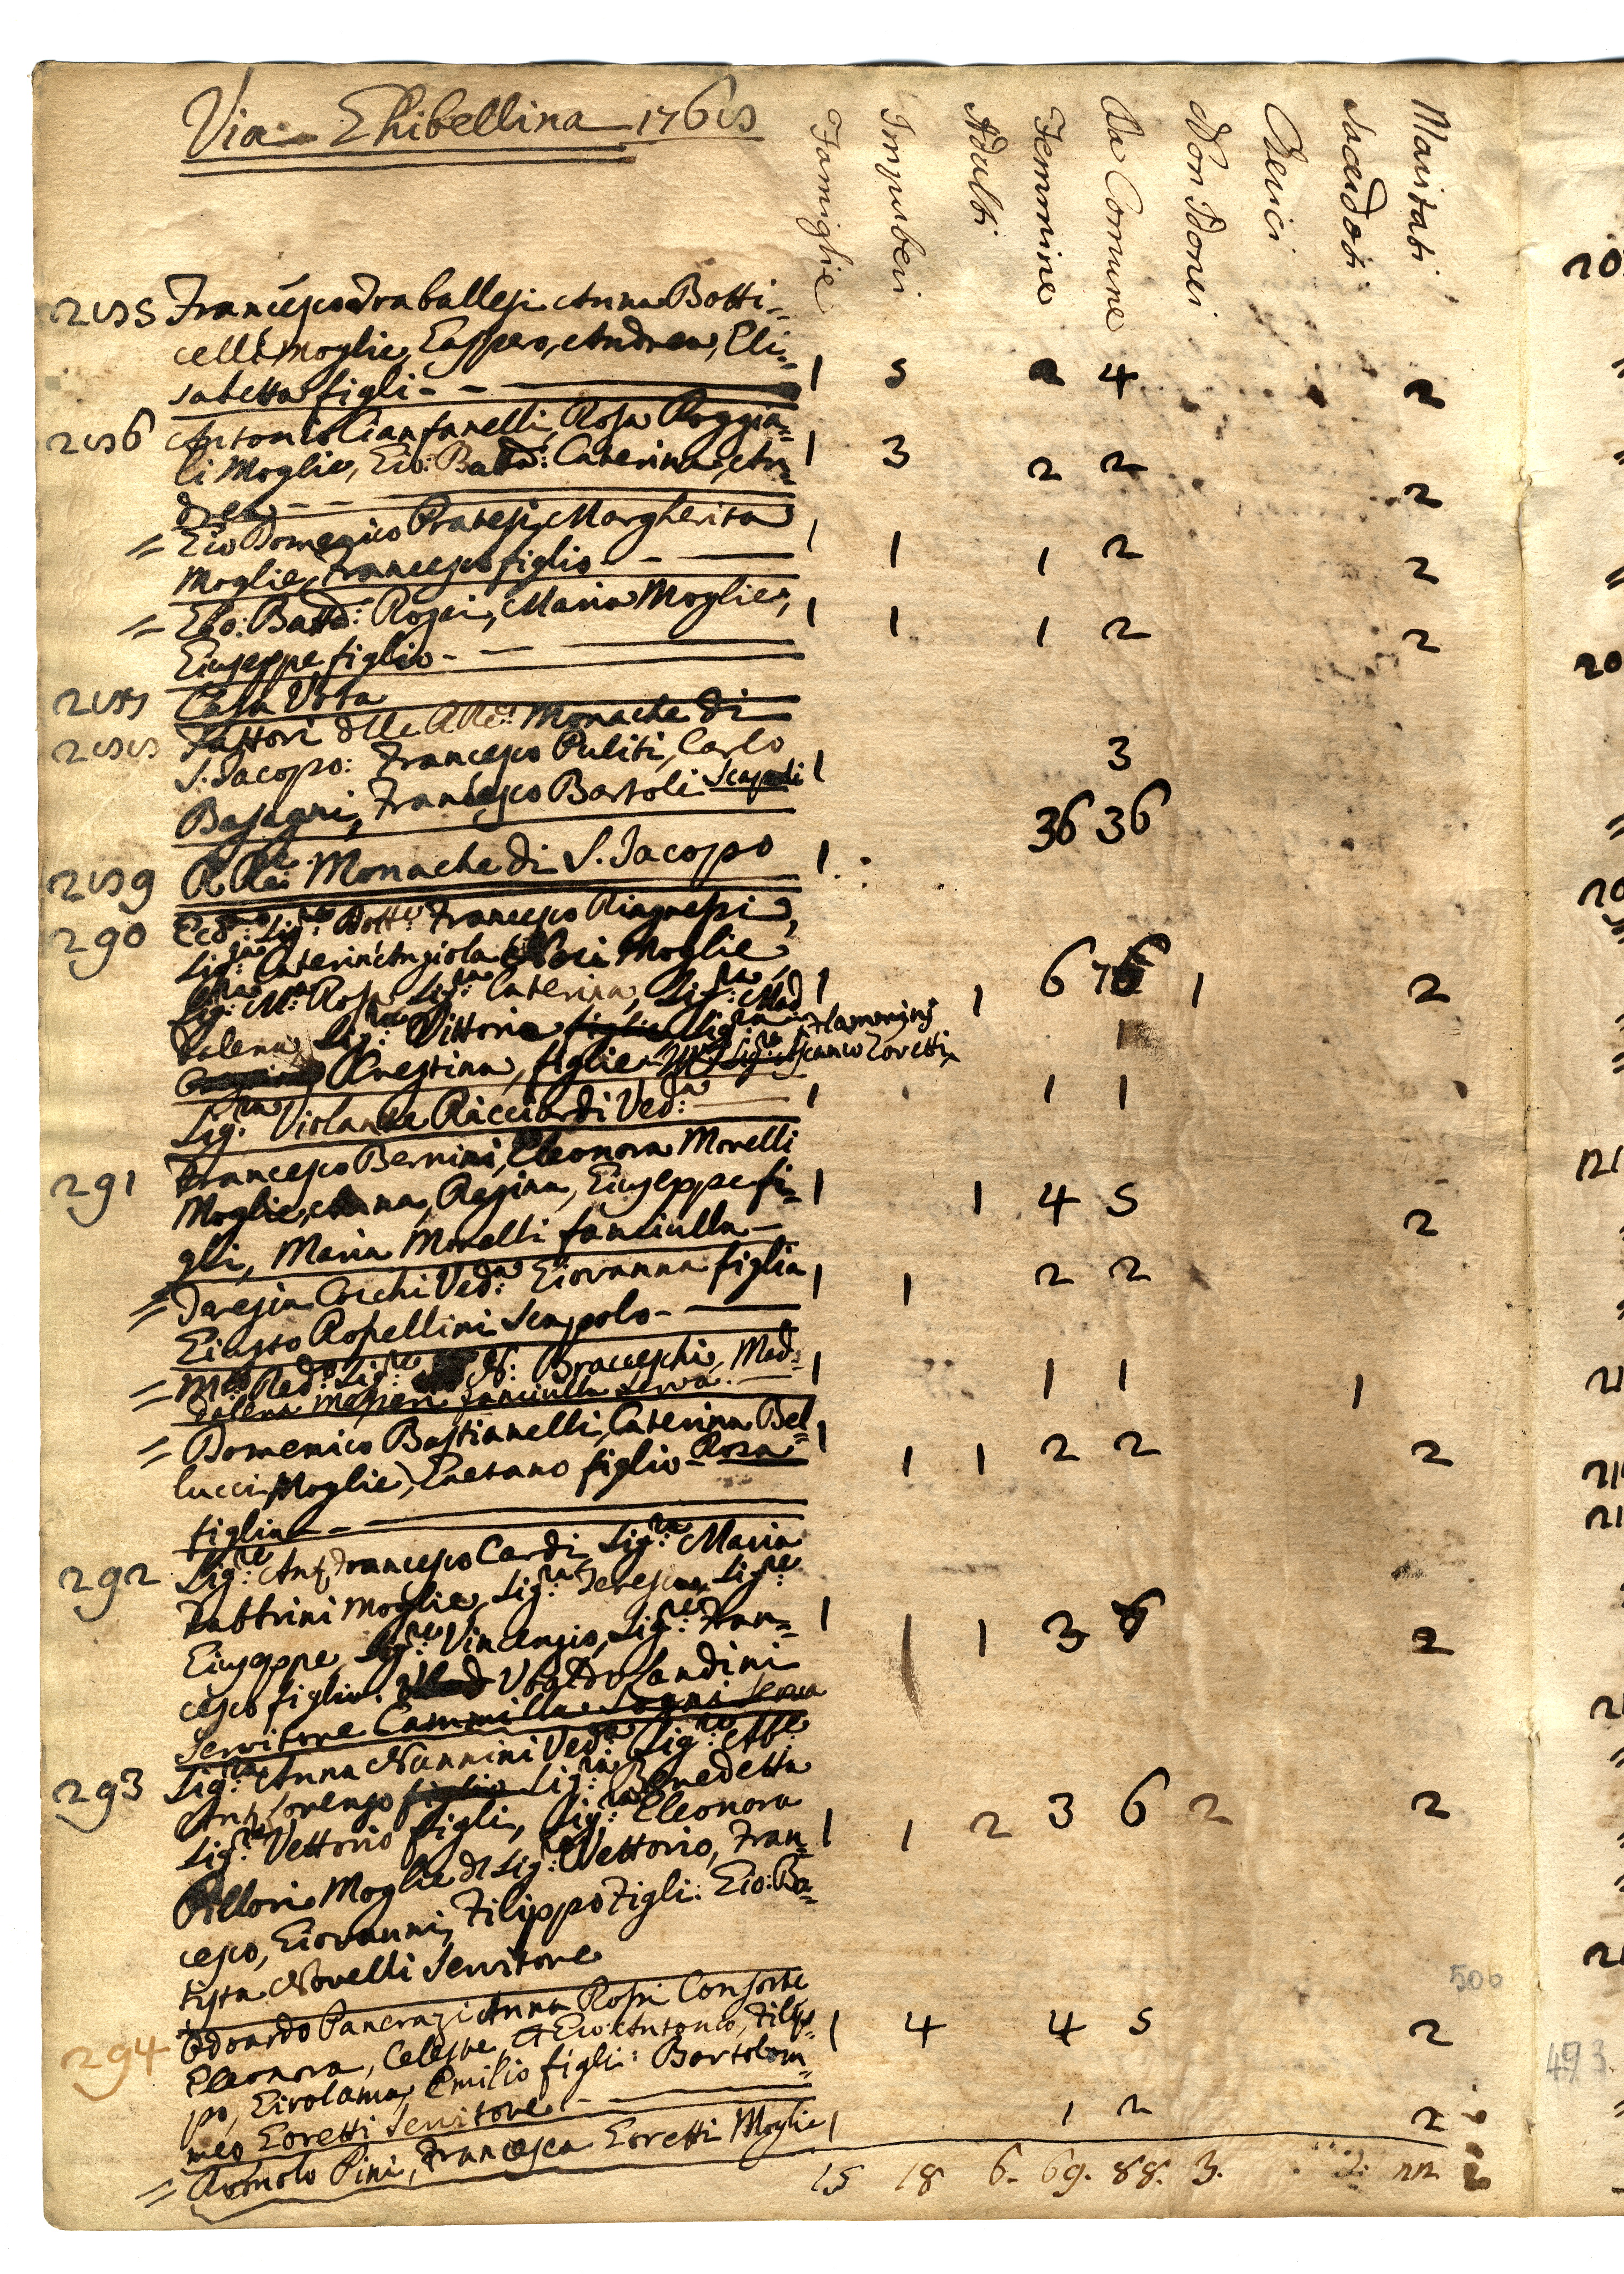 Via Ghibellina 1768
Famiglie Impuberi Adulti Femmine Da Comune Non Idonei Cherici Sacerdoti Maritati
285 Francesco Traballesi Anna Botti=
celli Moglie, Gaspero, Andrea, Eli=
sabetta figli - - 1 5 2 4 2
286 Antonio Cianfanelli, Rosa Poggia=
li Moglie, Gio: Batta: Caterina, An= 1 3 2 2 2
drea - -
= Gio Domenico Pratesi, Margherita
Moglie, Francesco figlio - - 1 1 1 2 2
= Gio: Batta: Rossi, Maria Moglie,
Giuseppe figlio - - 1 1 1 2 2
287 Casa Vota
288 Fattori delle RRde: Monache di
S. Jacopo: Francesco Puliti, Carlo
Basagni, Francesco Bartoli Scapoli 1 3
289 RRde: Monache di S. Jacopo 1 36 36
290 Ecc:mo Sig:re Dott:re Francesco
Sig:ra Caterin'Angiola Moglie
Sig:ra M:a Rosa Sig:ra Caterina, Sig:ra Mad 1 1 6 7 1 2
dalena Sig:ra Vittoria figlie Sig:ra Flamminj
Prestina, figlie Ascanio Goretti 1
Sig:ra Violante Ricciardi Ved:a 1 1 1
291 Francesco Bernini, Eleonora Morelli
Moglie, Anna, Regina, Giuseppe fi=
gli, Maria Morelli fanciulla - 1 1 4 5 2
= Teresia Cocchi Ved:a Giovanna figlia
Giusto Rosellini Scapolo - 1 1 2 2
= M:to Red:o Sig:re N: Bracceschi, Mad=
dalena fanciulla Serva. 1 1 1 1
= Domenico Bastianelli, Caterina Bel=
lucci Moglie, Gaetano figlio - Rosa 1 1 1 2 2 2
figlia - -
292 Sig:re Ant Francesco Cardi Sig:ra Maria
Fabbrini Moglie, Sig:ra Teresia, Sig:re
Giuseppe Sig:re Vincenzio, Sig:re Fran= 1 1 1 3 6 2
cesco figlio. Ubaldo Landini
Servitore Cammilla Sogni Serva
293 Sig:ra Anna Nannini Ved:a Sig:re Ab:e
Ant Lorenzo figlio Sig:ra Benedetta
Sig:re Vettorio figli, Sig:ra Eleonora
Pillori Moglie dl Sig:re Vettorio, Fran= 1 1 2 3 6 2 2
cesco, Giovanni, Filippo Figli: Gio: Ba=
tista Novelli Servitore
294 Odoardo Pancrazi Anna Rosi Consorte
Eleonora, Celeste, Gio: Antonio, Filip= 1 4 4 5 2
po, Girolama, Emilio figli: Bartolom=
meo Goretti Servitore -
= Romolo Pini, Francesca Goretti Moglie 1 1 2 2
15 18 6. 69. 88. 3. 22.
500
493.